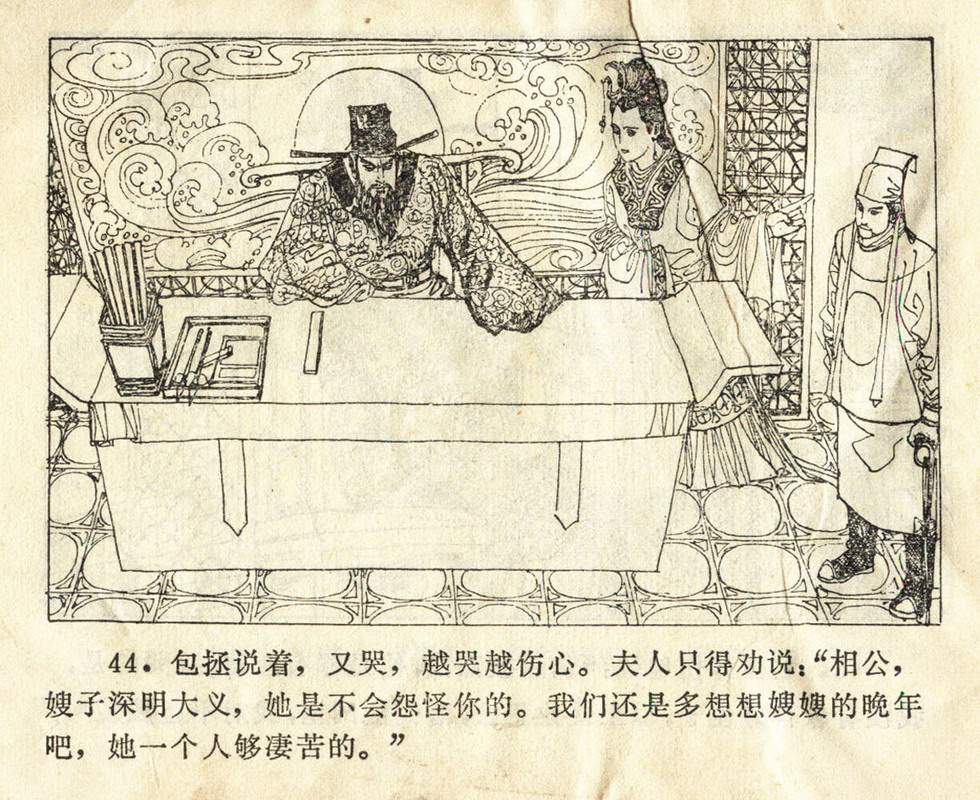 44. 包拯说着，又哭，越哭越伤心。夫人只得劝说：“相公，
嫂子深明大义，她是不会怨怪你的。我们还是多想想嫂嫂的晚年
吧，她一个人够凄苦的。”